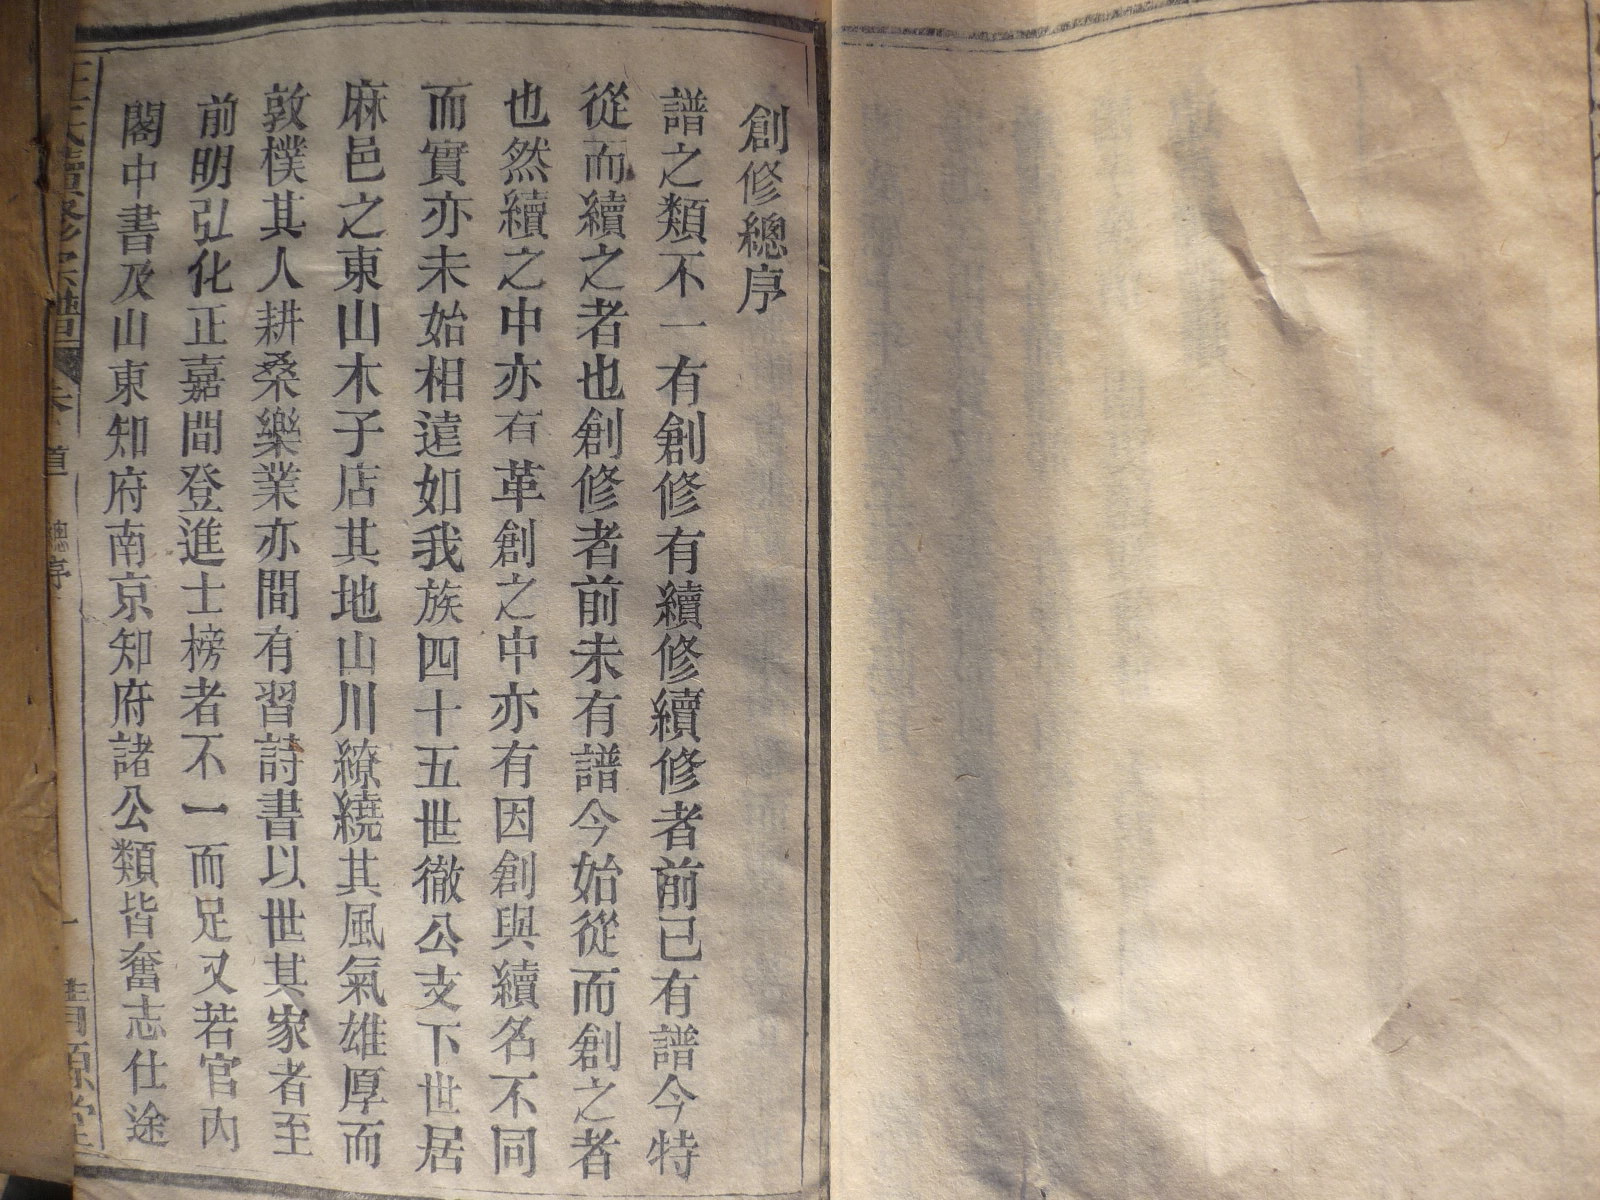 創修總序
譜之類不一有創修有續修續修者前已有譜今特
從而續之者也創修者前未有譜今始從而創之者
也然續之中亦有革創之中亦有因創與續名不同
而實亦未始相遠如我族四十五世徹公支下世居
麻邑之東山木子店其地山川繚繞其風氣雄厚而
敦樸其人耕桑樂業亦間有習詩書以世其家者至
前明弘化正嘉間登進士榜者不一而足又若官內
閣中書及山東知府南京知府諸公類皆奮志仕途
續修宗譜 首 總序 一 清源堂